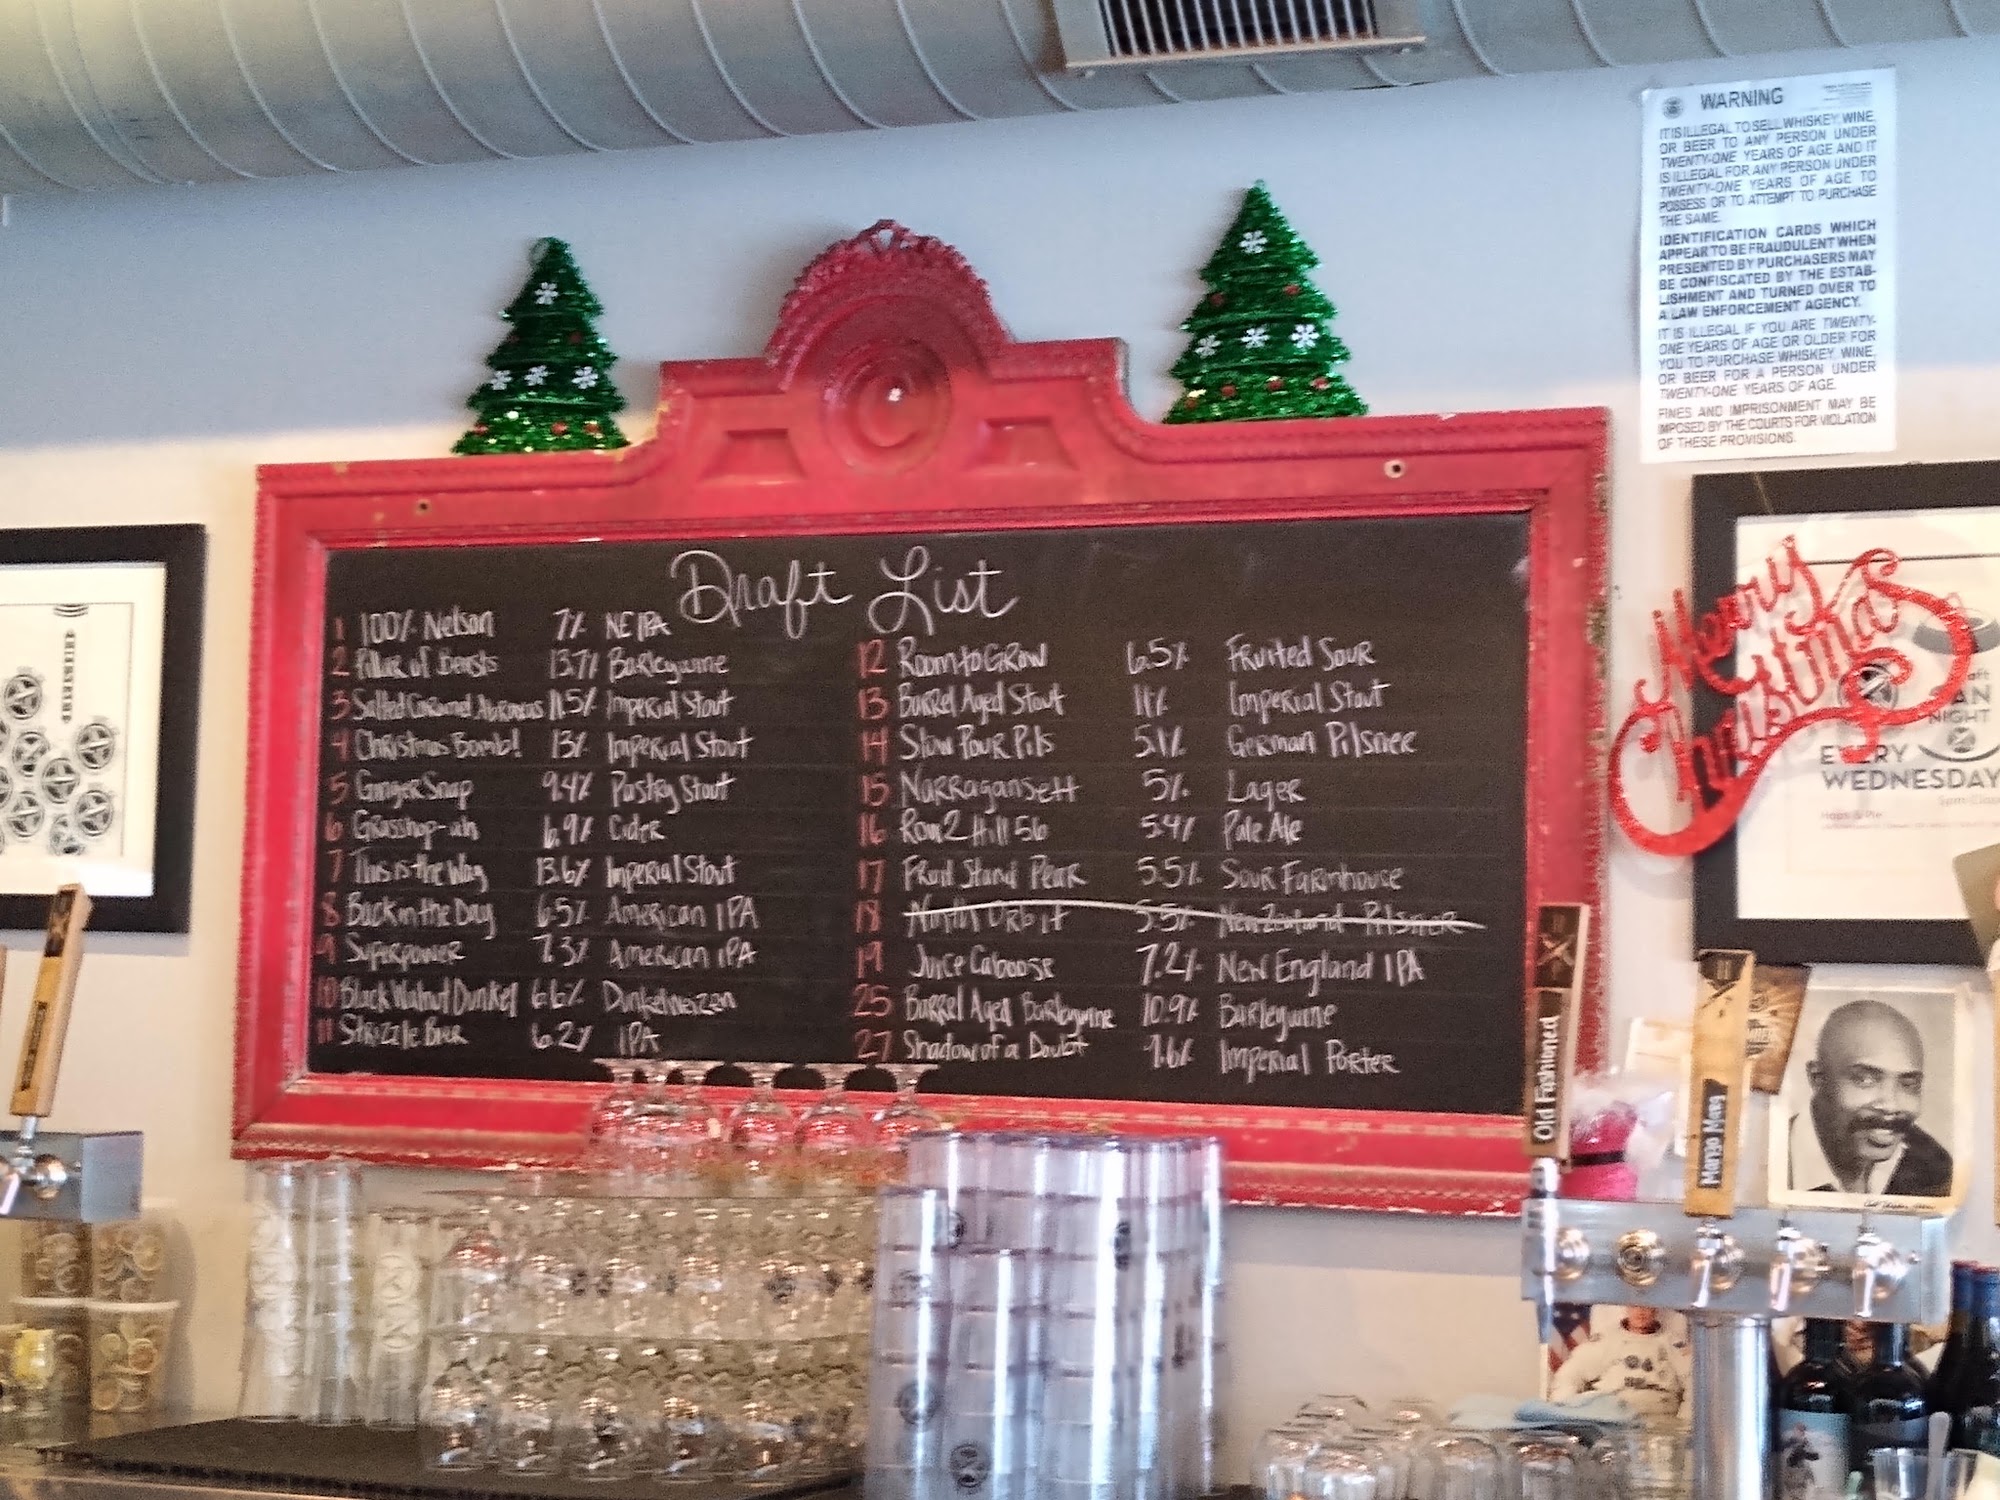 Draft List
1 100% Nelson 7% NEIPA
2 Pillar of Beasts 13.7% Barleywine
3 Salted Caramel 11.5% Imperial Stout
4 Christmas Bomb! 13% Imperial Stout
5 Ginger Snap 9.4% Pastry Stout
6 Grasshop-ah 6.9% Cider
7 This is the Way 13.6% Imperial Stout
8 Back in the Day 6.5% American IPA
9 Superpower 7.3% American IPA
10 Black Walnut Dunkel 6.6% Dunkelweizen
11 Strizzle Bier 6.2% IPA
12 Room to Grow 6.5% Fruited Sour
13 Barrel Aged Stout 11% Imperial Stout
14 Slow Pour Pils 5.1% German Pilsner
15 Narragansett 5% Lager
16 Row 2 Hill 56 5.4% Pale Ale
17 Fruit Stand Pear 5.5% Sour Farmhouse
18 North Orbit 5.5% New Zealand Pilsner
19 Juice Caboose 7.2% New England IPA
25 Barrel Aged Barleywine 10.9% Barleywine
27 Shadow of a Doubt 9.6% Imperial Porter
WARNING
IT IS ILLEGAL TO SELL WHISKEY, WINE,
OR BEER TO ANY PERSON UNDER
TWENTY-ONE YEARS OF AGE AND IT
IS ILLEGAL FOR ANY PERSON UNDER
TWENTY-ONE YEARS OF AGE TO
POSSESS OR TO ATTEMPT TO PURCHASE
THE SAME.
IDENTIFICATION CARDS WHICH
APPEAR TO BE FRAUDULENT WHEN
PRESENTED BY PURCHASERS MAY
BE CONFISCATED BY THE ESTAB-
LISHMENT AND TURNED OVER TO
A LAW ENFORCEMENT AGENCY.
IT IS ILLEGAL IF YOU ARE TWENTY-
ONE YEARS OF AGE OR OLDER FOR
YOU TO PURCHASE WHISKEY, WINE,
OR BEER FOR A PERSON UNDER
TWENTY-ONE YEARS OF AGE.
FINES AND IMPRISONMENT MAY BE
IMPOSED BY THE COURTS FOR VIOLATION
OF THESE PROVISIONS.
Merry
Christmas
NIGHT
EVERY
WEDNESDAY
Hops & Pie
Old Fashioned
Mango Mang